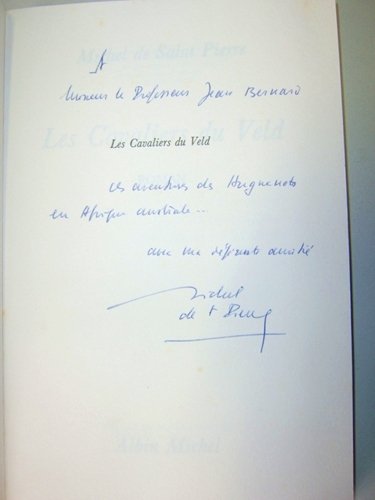 A
Monsieur le Professeur Jean Bernard
Les Cavaliers du Veld
Les aventures des Huguenots
en Afrique australe..
avec ma déférente amitié
Michel
de St Pierre
Michel de Saint Pierre
Les Cavaliers du Veld
Albin Michel